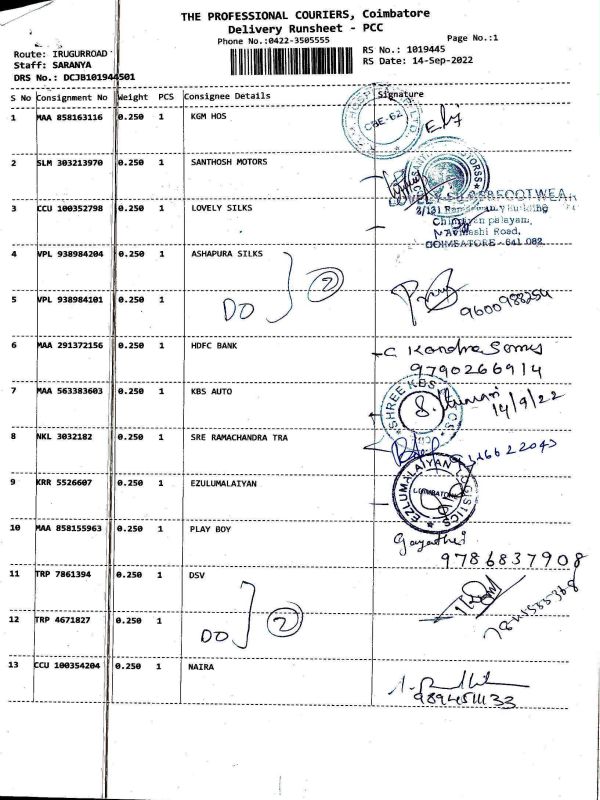 THE PROFESSIONAL COURIERS, Coimbatore
Delivery Runsheet - PCC
Phone No.:0422-3505555
Page No.:1
Route: IRUGURROAD
Staff: SARANYA
DRS No.: DCJB101944501
RS No.: 1019445
RS Date: 14-Sep-2022
S No Consignment No Weight PCS Consignee Details Signature
1 MAA 858163116 0.250 1 KGM HOS
CBE-62
2 SLM 303213970 0.250 1 SANTHOSH MOTORS
3 CCU 100352798 0.250 1 LOVELY SILKS
Chinniyan palayam,
COIMBATORE - 641 062.
4 VPL 938984204 0.250 1 ASHAPURA SILKS
DO 2
5 VPL 938984101 0.250 1
6 MAA 291372156 0.250 1 HDFC BANK
9790266914
7 MAA 563383603 0.250 1 KBS AUTO
SHREE KBS
14/9/22
8 NKL 3032182 0.250 1 SRE RAMACHANDRA TRA
9 KRR 5526607 0.250 1 EZULUMALAIYAN
EZLUMALAIYAN LOGISTICS
COIMBATORE
10 MAA 858155963 0.250 1 PLAY BOY
Gayathri
9786837908
11 TRP 7861394 0.250 1 DSV
12 TRP 4671827 0.250 1
DO 2
13 CCU 100354204 0.250 1 NAIRA
9894511133